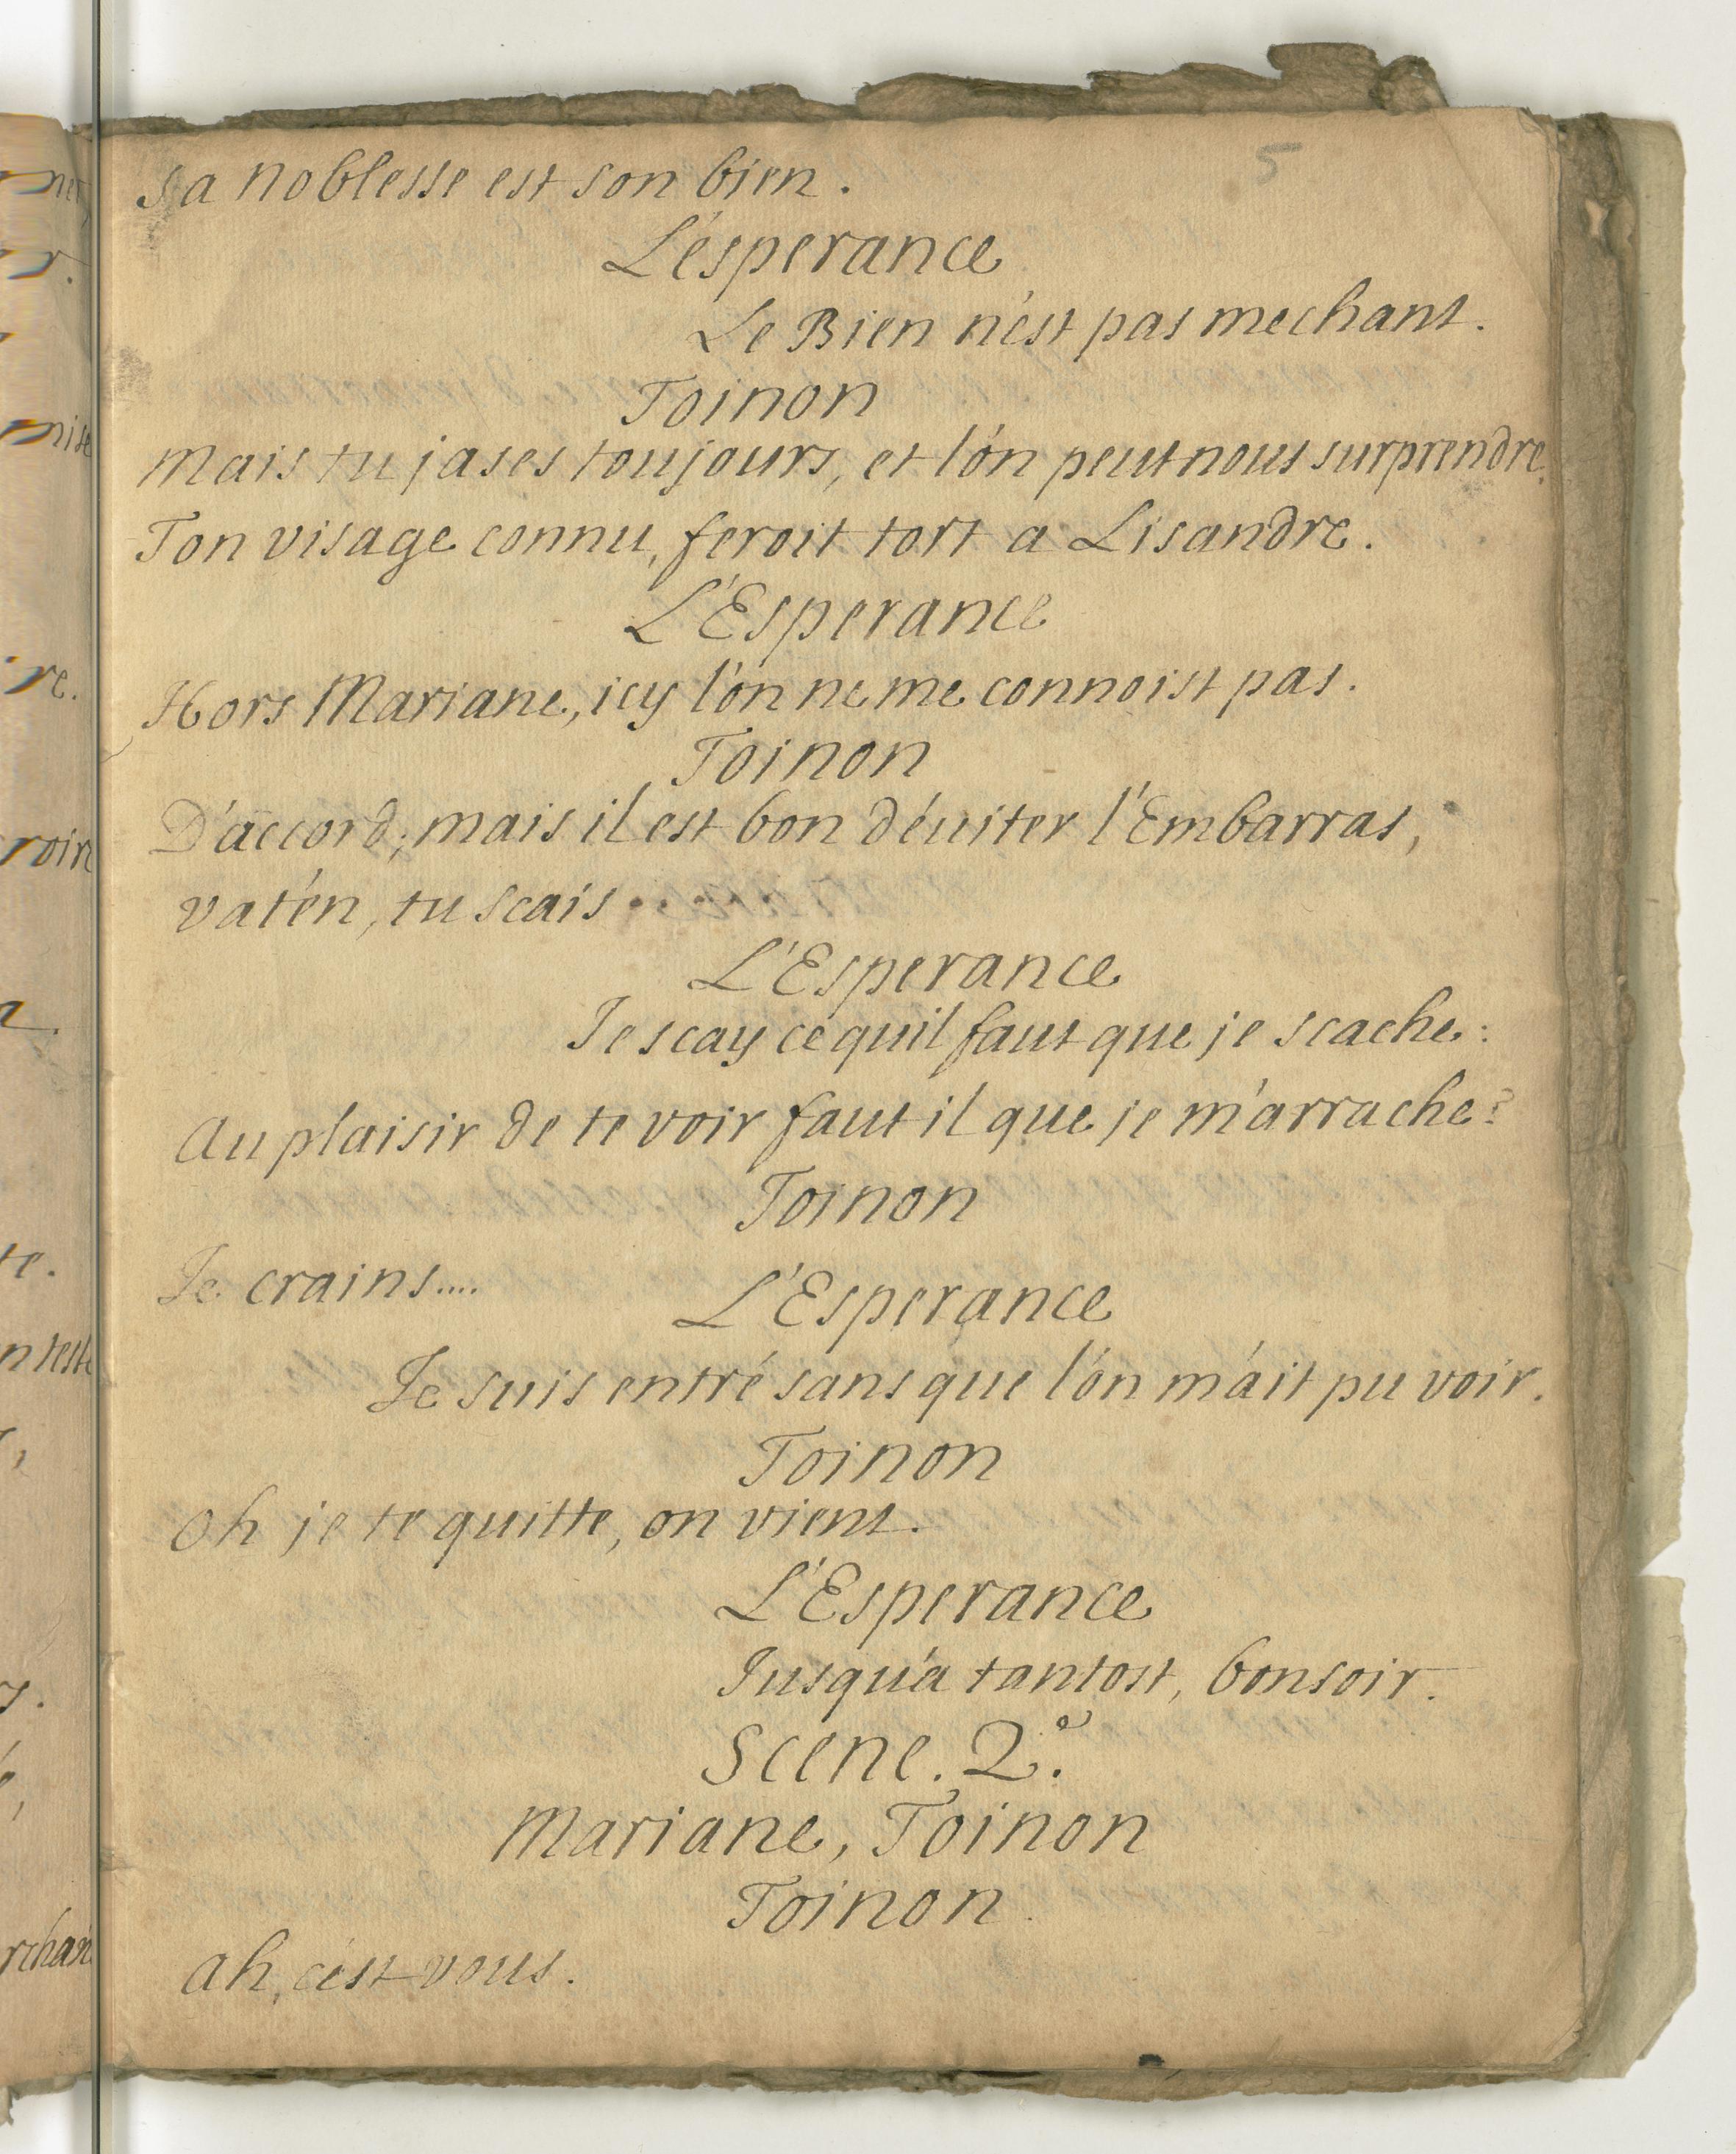 5
sa noblesse est son bien.
L'ésperance
Le Bien n'ést pas mechant.
Toinon
Mais tu jases toujours, et l'ón peut nous surprendre.
Ton visage connu, feroit tort a Lisandre.
L'Esperance
Hors Mariane, icy l'ón ne me connoist pas.
Toinon
D'accord; mais il est bon d'éuiter l'Embarras,
va t'én, tu scais..
L'Esperance
Je scay ce quil faut que je scache:
Au plaisir de te voir faut il que je m'arrache?
Toinon
Je crains....
L'Esperance
Je suis entré sans que l'ón m'áit pu voir.
Toinon
Oh je te quitte, on vient.
L'Esperance
Jusqu'a tantost, bonsoir.
Scene. 2.e
Mariane, Toinon
Toinon.
Ah, c'ést vous.